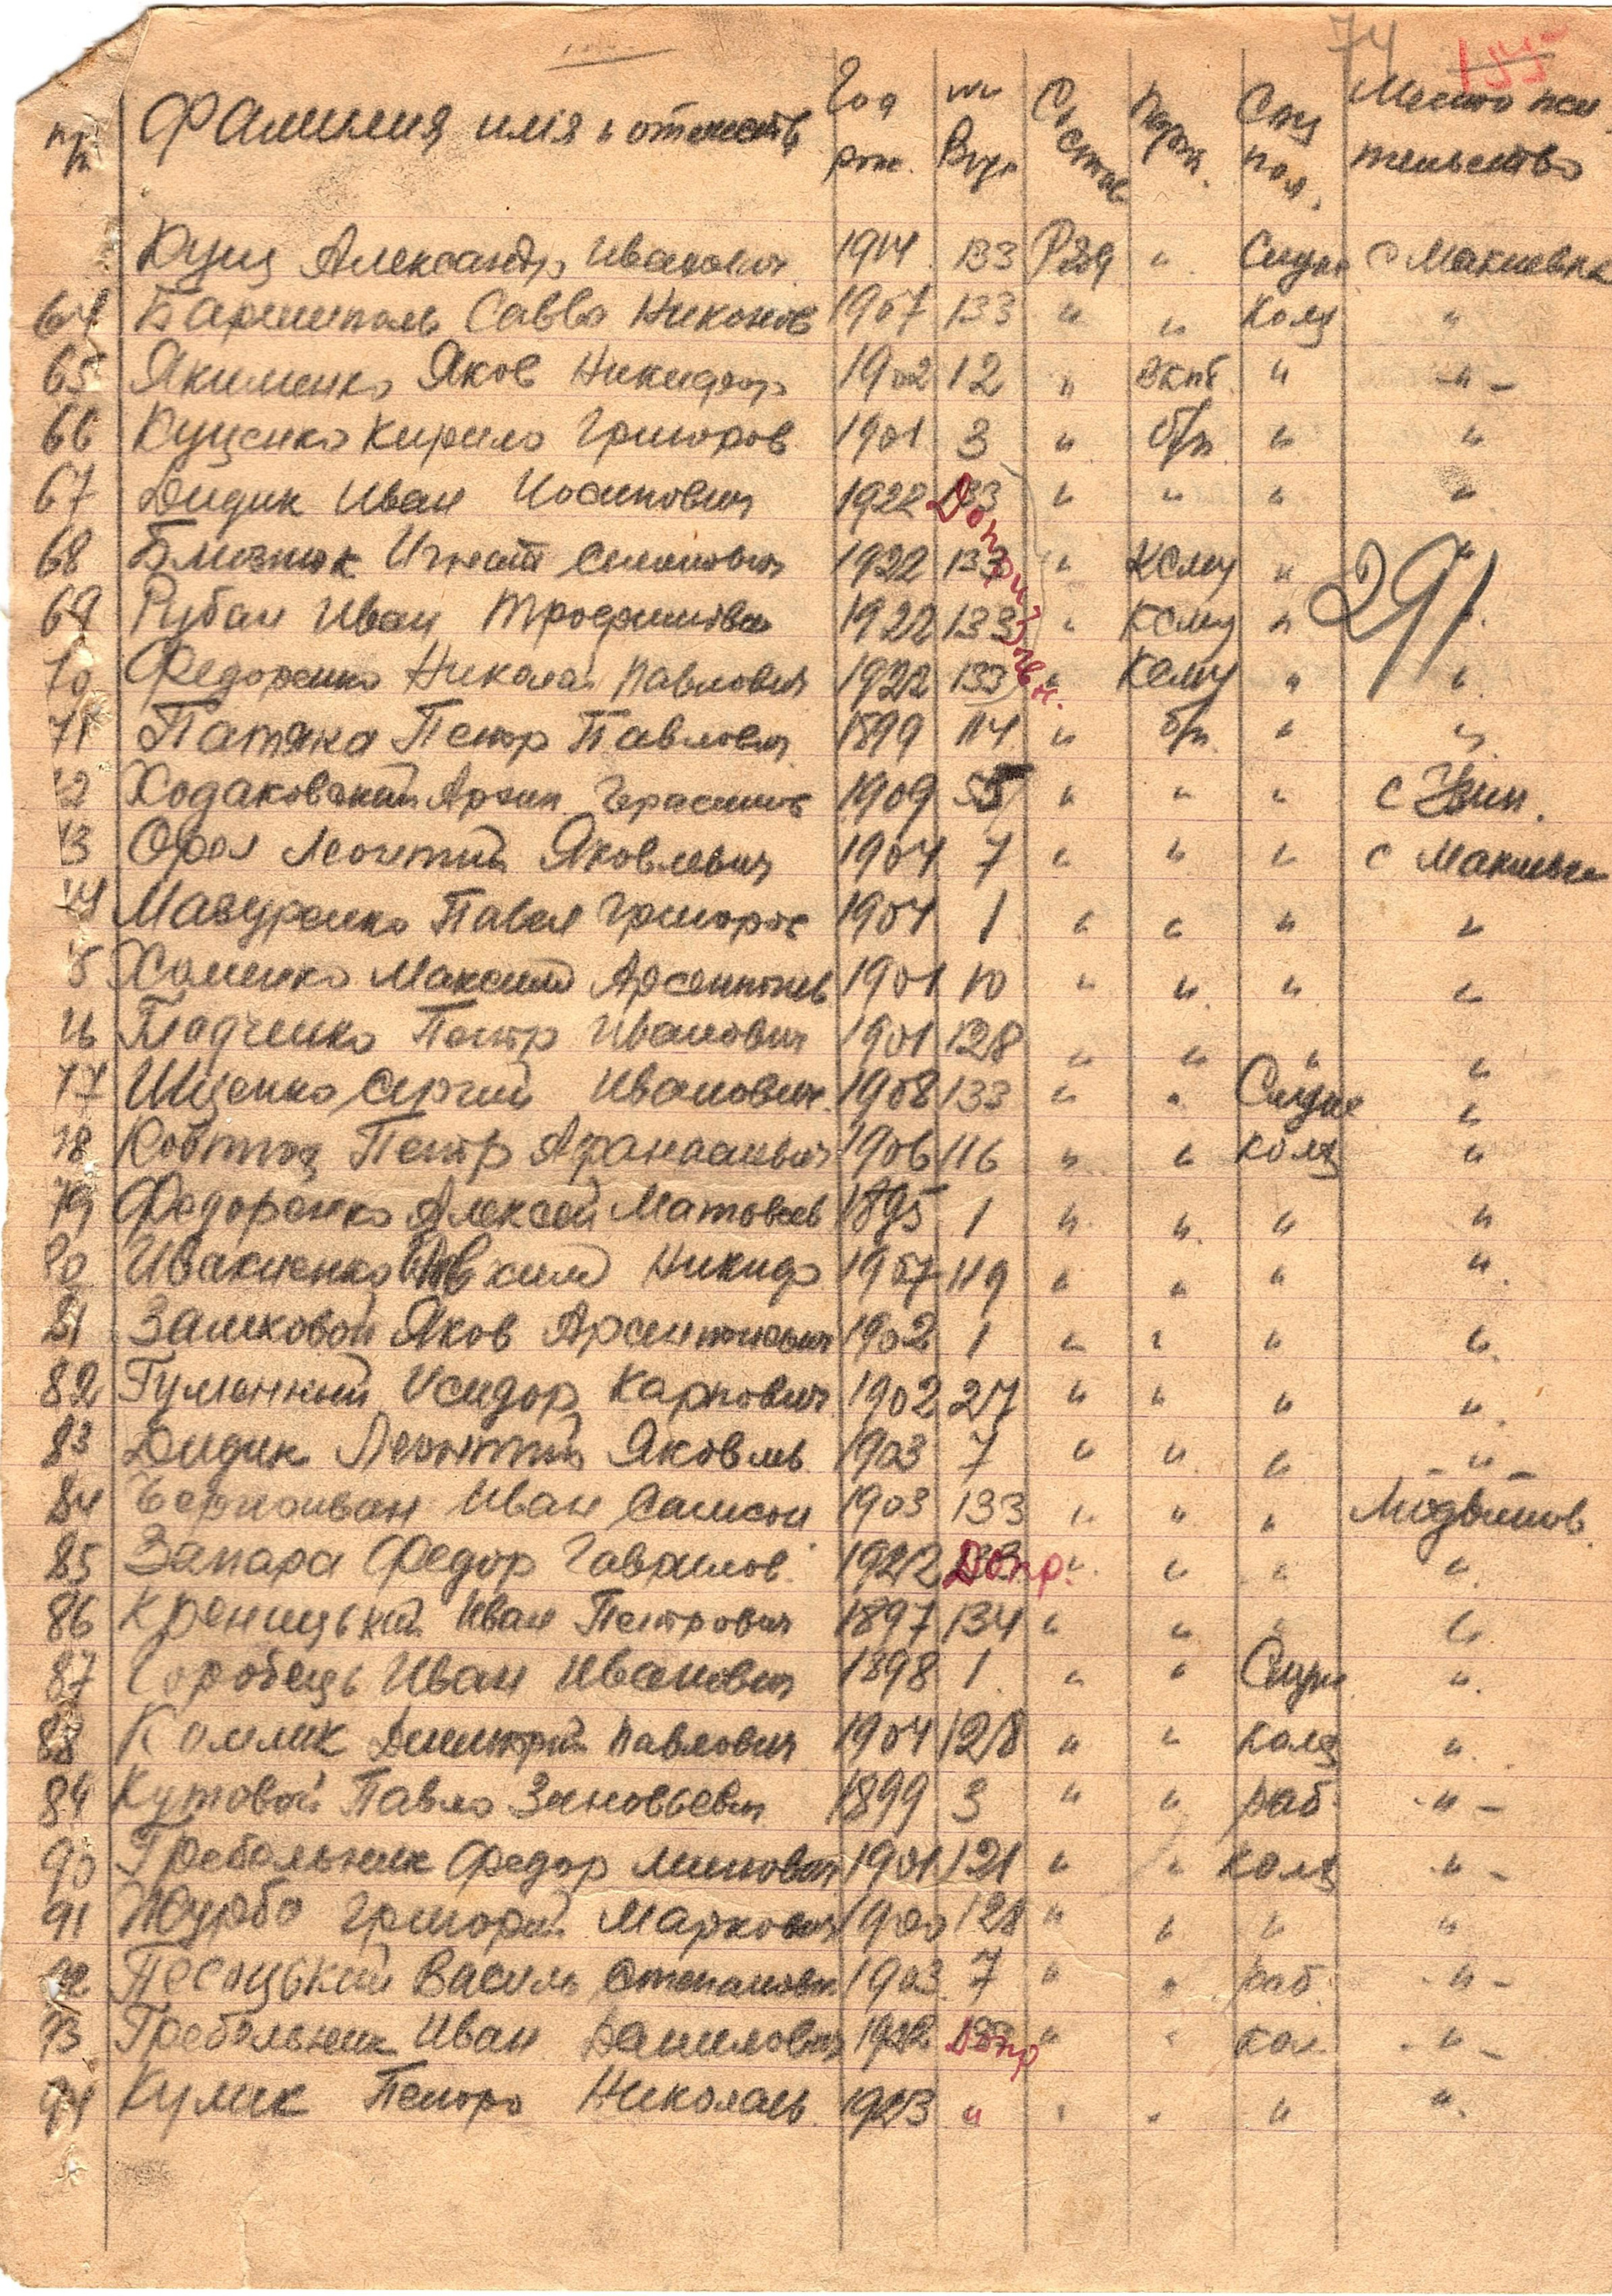 74 155
пп Фамилия имя и отчеств Год рож. № Вус Состав Парт. Соц пол. Место жи-тельство
Кущ Александр Иванович 1914 133 Ряд " Служ с Макиевка
64 Баришполь Савва Никонов 1907 133 " " Колх "
65 Якименко Яков Никифор 1902 12 " вкпб " -"-
66 Куценко Кирило Григоров 1901 3 " б/п " "
67 Дидик Иван Иосипович 1922 133 " " " "
Допризывн.
68 Близнюк Игнат Семенович 1922 133 " Ксму " "
291
69 Рубан Иван Трофимович 1922 133 " Ксму " "
70 Федоренко Николай Павлович 1922 133 " Ксму " "
71 Патяка Петр Павлович 1899 114 " б/п " "
72 Ходаковский Архип Герасимов 1909 5 " " "
73 Орел Леонтий Яковлевич 1904 7 " " " с Макиевка
74 Мазуренко Павел Григоров 1904 1 " " " "
75 Хоменко Максим Арсентьев 1901 10 " " " "
76 Гладченко Петр Иванович 1901 128 " " " "
77 Ищенко Сергий Иванович 1908 133 " " Служ "
78 Ковтющ Петр Афанасиевич 1906 116 " " колх "
79 Федоренко Алексей Матвеев 1895 1 " " " "
80 Ивакненко Никифор 1907 119 " " " "
81 Замховой Яков Арсентиевич 1902 1 " " " "
82 Гуменний Исидор Карпович 1902 27 " " " "
83 Дидик Леонтий Яковль 1903 7 " " " -"-
84 Чорноиван Иван Самсон 1903 133 " " "
85 Запара Федор Гаврилов 1922 133 Допр. " " " "
86 Креницький Иван Петрович 1897 134 " " " "
87 Горобець Иван Иванович 1898 1 " " Служ "
88 Комлик Дмитрий Павлович 1904 128 " " колх "
89 Кутовой Павло Зиновьевич 1899 3 " " раб -"-
90 Гребельник Федор Минович 1901 121 " " колх -"-
91 Журба Григорий Маркович 1900 128 " " " "
92 Песоцький Василь Степанович 1903 7 " " раб -"-
93 Гребельник Иван Данилович 1922 Допр " " кол -"-
94 Кулик Петро Николаев 1923 " " " " "